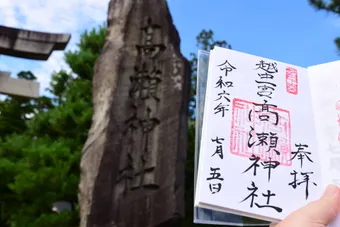 高瀬神社
奉拝
越中一宮 高瀬神社
令和六年 七月五日